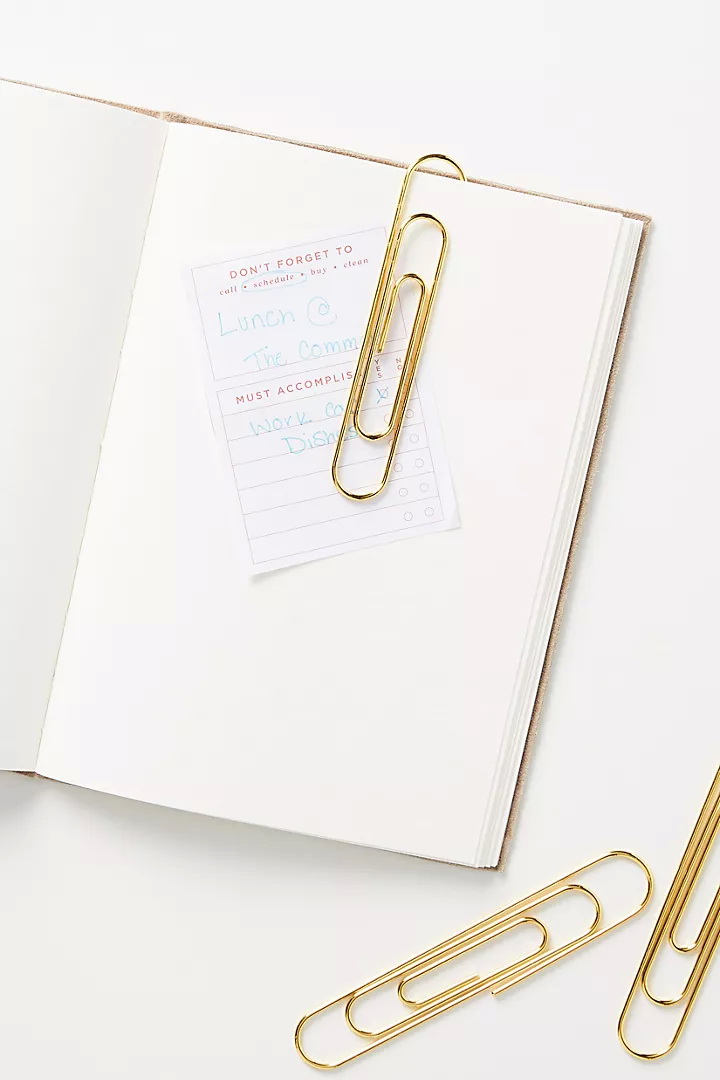 DON'T FORGET TO
call • schedule • buy • clean
Lunch @
The Comm
MUST ACCOMPLIS
YES NO
Work
Dishes